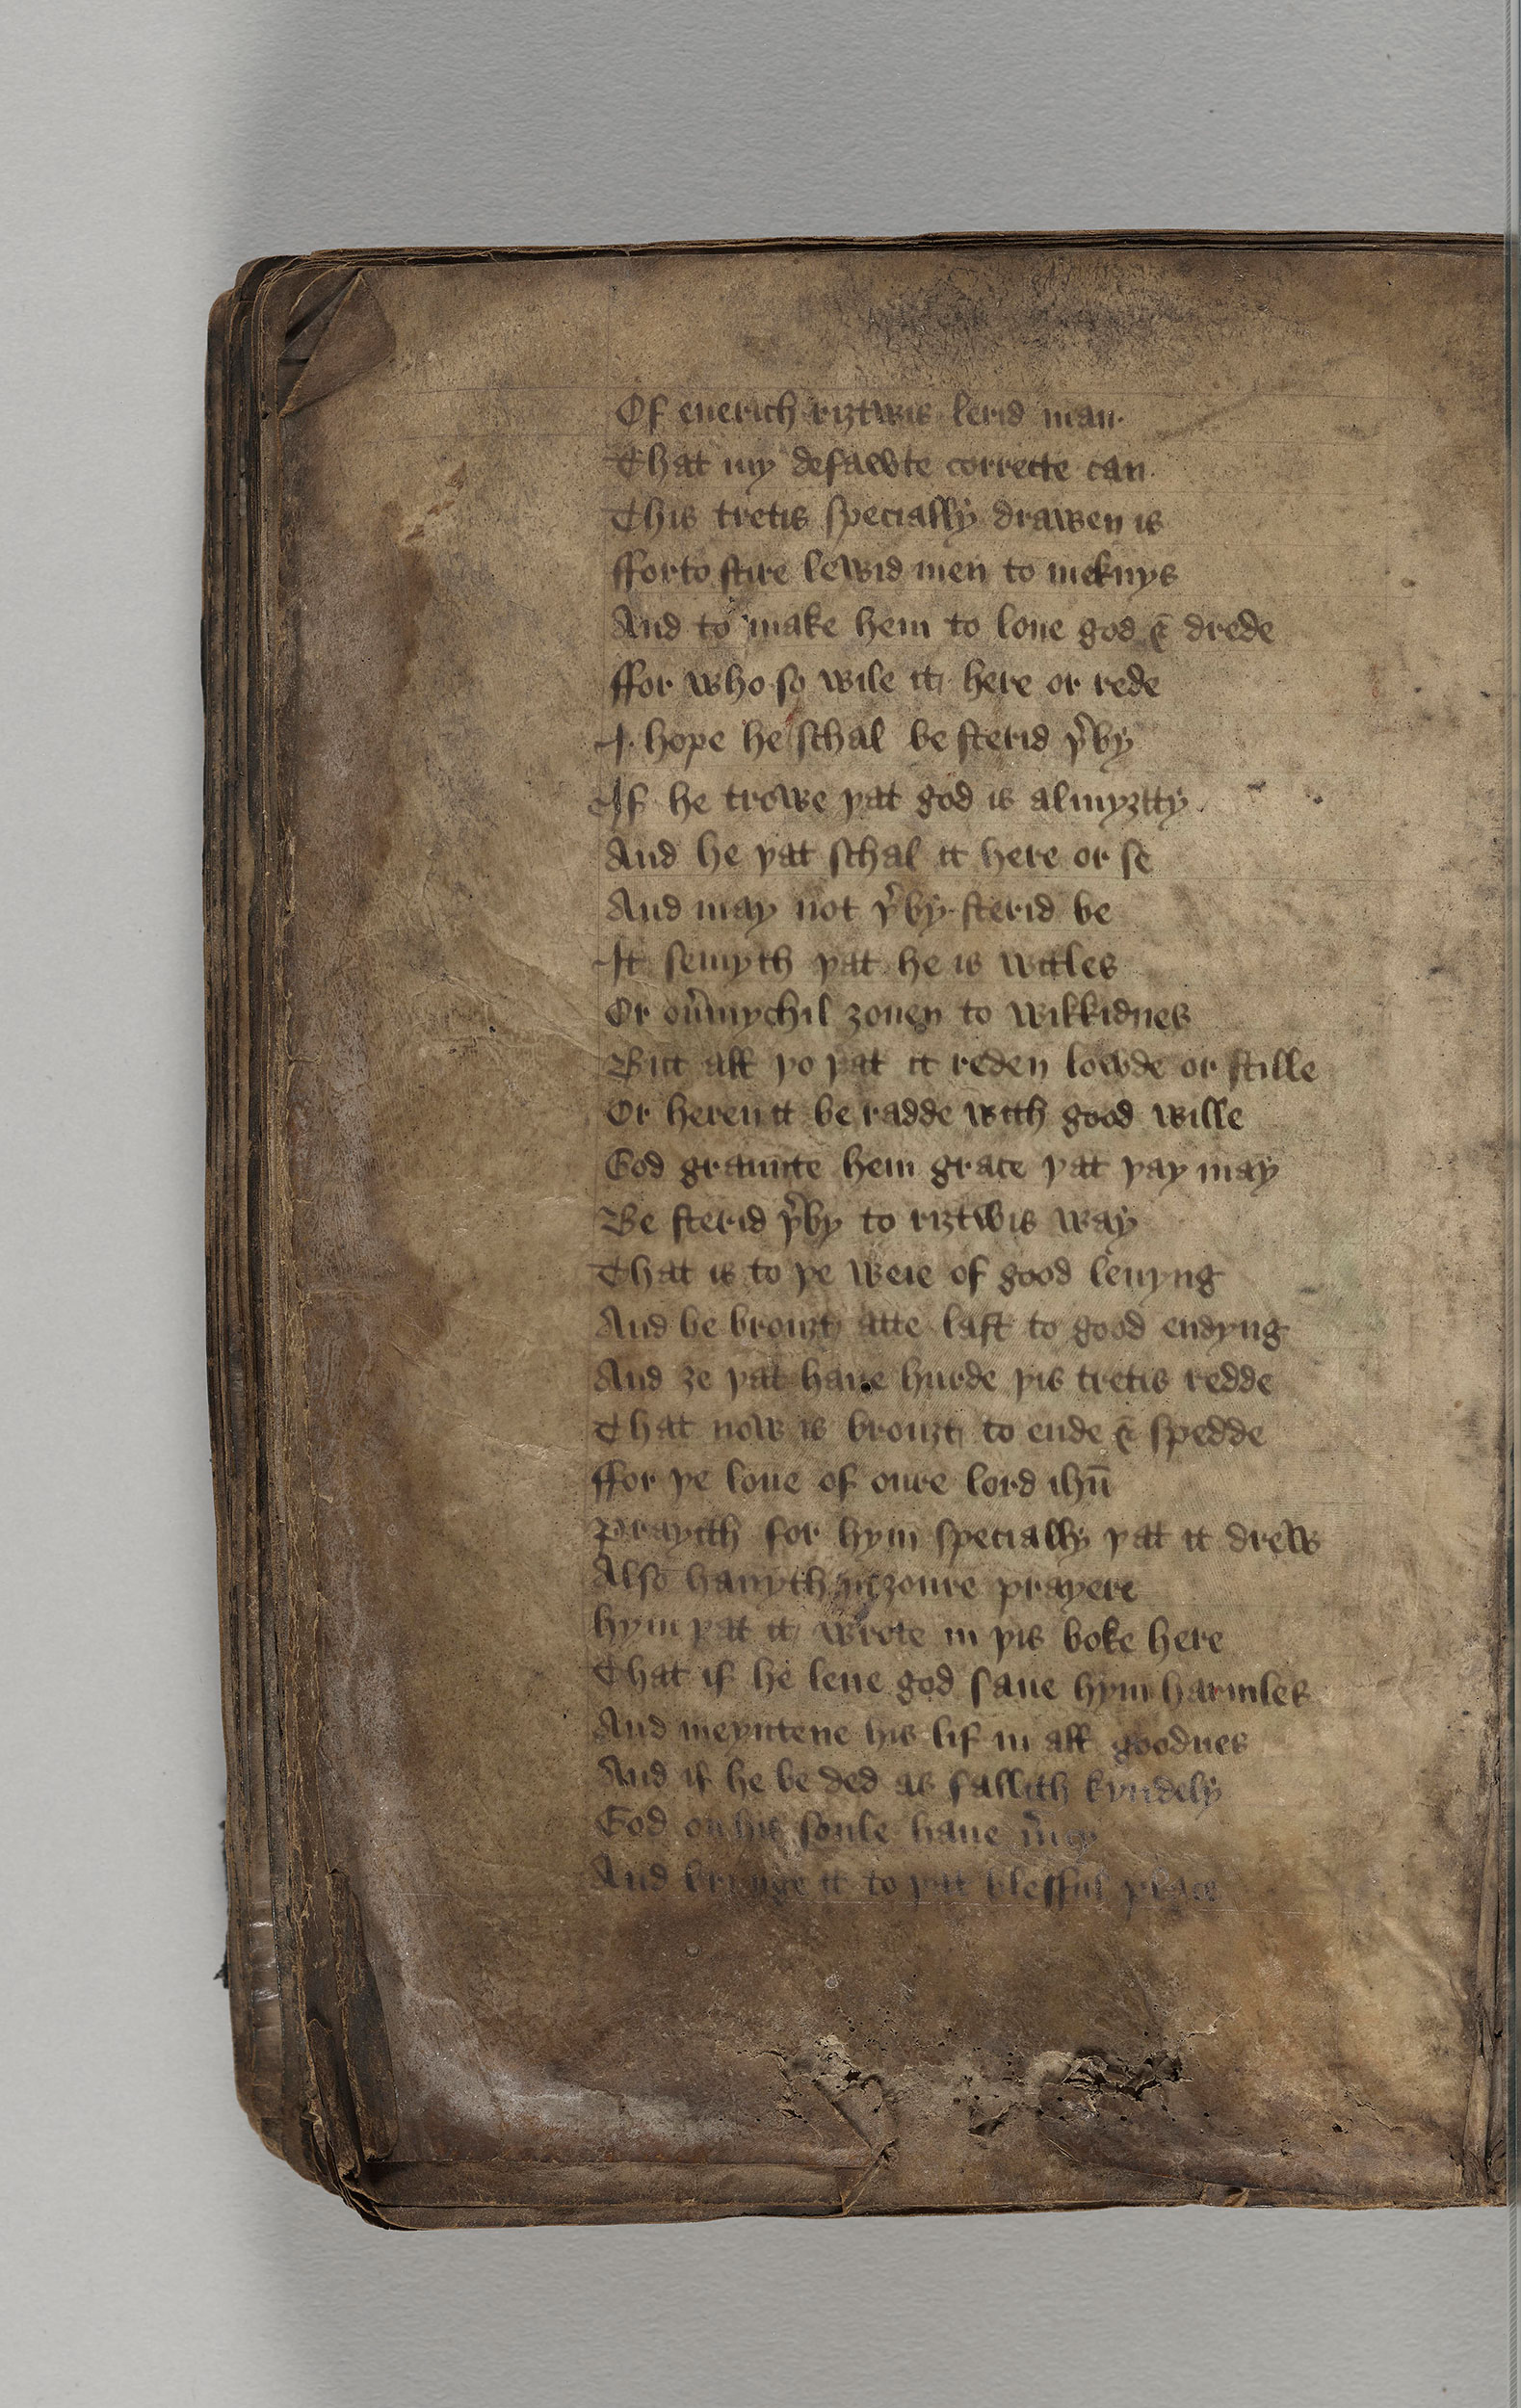 Of euerich riȝtwis lerid man·
That my defawte correcte can·
This tretis specially drawen is
fforto stire lewid men to meknys
And to make hem to loue god & drede
ffor who so wile it here or rede
I· hope he schal be sterid þ͛by
If he trowe þat god is almyȝtty·
And he þat schal it here or se
And may not þ͛by sterid be
It semyth þat he is witles
Or ou͛mychil ȝouen to wikkidnes
But all þo þat it reden lowde or stille
Or heren it be radde with good wille
God graunte hem grace þat þay may
Be sterid þ͛by to riȝtwis way
That is to þe weie of good leuyng
And be brouȝt atte last to good endyng
And ȝe þat haue hurde þis tretis redde
That now is brouȝt to ende & spedde
ffor þe loue of oure lord ihū
Prayith for hym specially þat it drew
Also hauyth in ȝoure prayere
hym þat it wrote in þis boke here
That if he leue god saue hym harmles
And meyntene his lif in all goodnes
And if he be ded as fallith kyndely
God on his soule haue m͛cy
And brynge it to þat blessful place